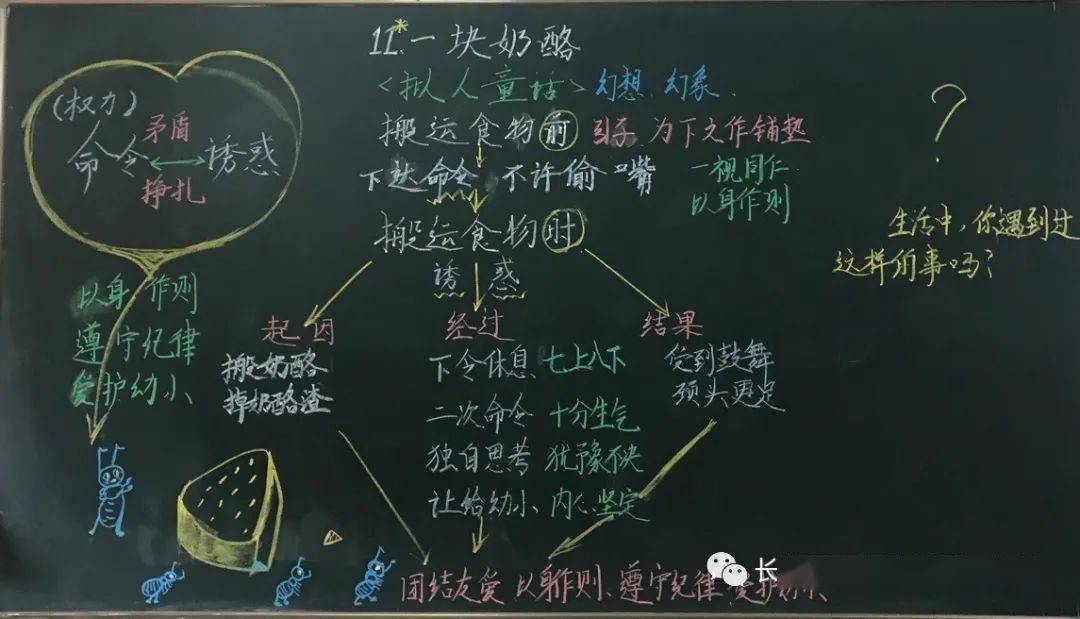 11*.一块奶酪
<拟人童话> 幻想、幻象.
搬运食物前 引子 为下文作铺垫
下达命令 不许偷嘴 一视同仁
以身作则
搬运食物时
诱惑
起因 经过 结果
搬奶酪
掉奶酪渣
下令休息 七上八下
二次命令 十分生气
独自思考 犹豫不决
让给幼小 内心坚定
受到鼓舞
劲头更足
团结友爱 以身作则、遵守纪律、爱护幼小、
(权力)
命令 矛盾 诱惑
挣扎
以身作则
遵守纪律
爱护幼小、
?
生活中,你遇到过
这样的事吗?
长